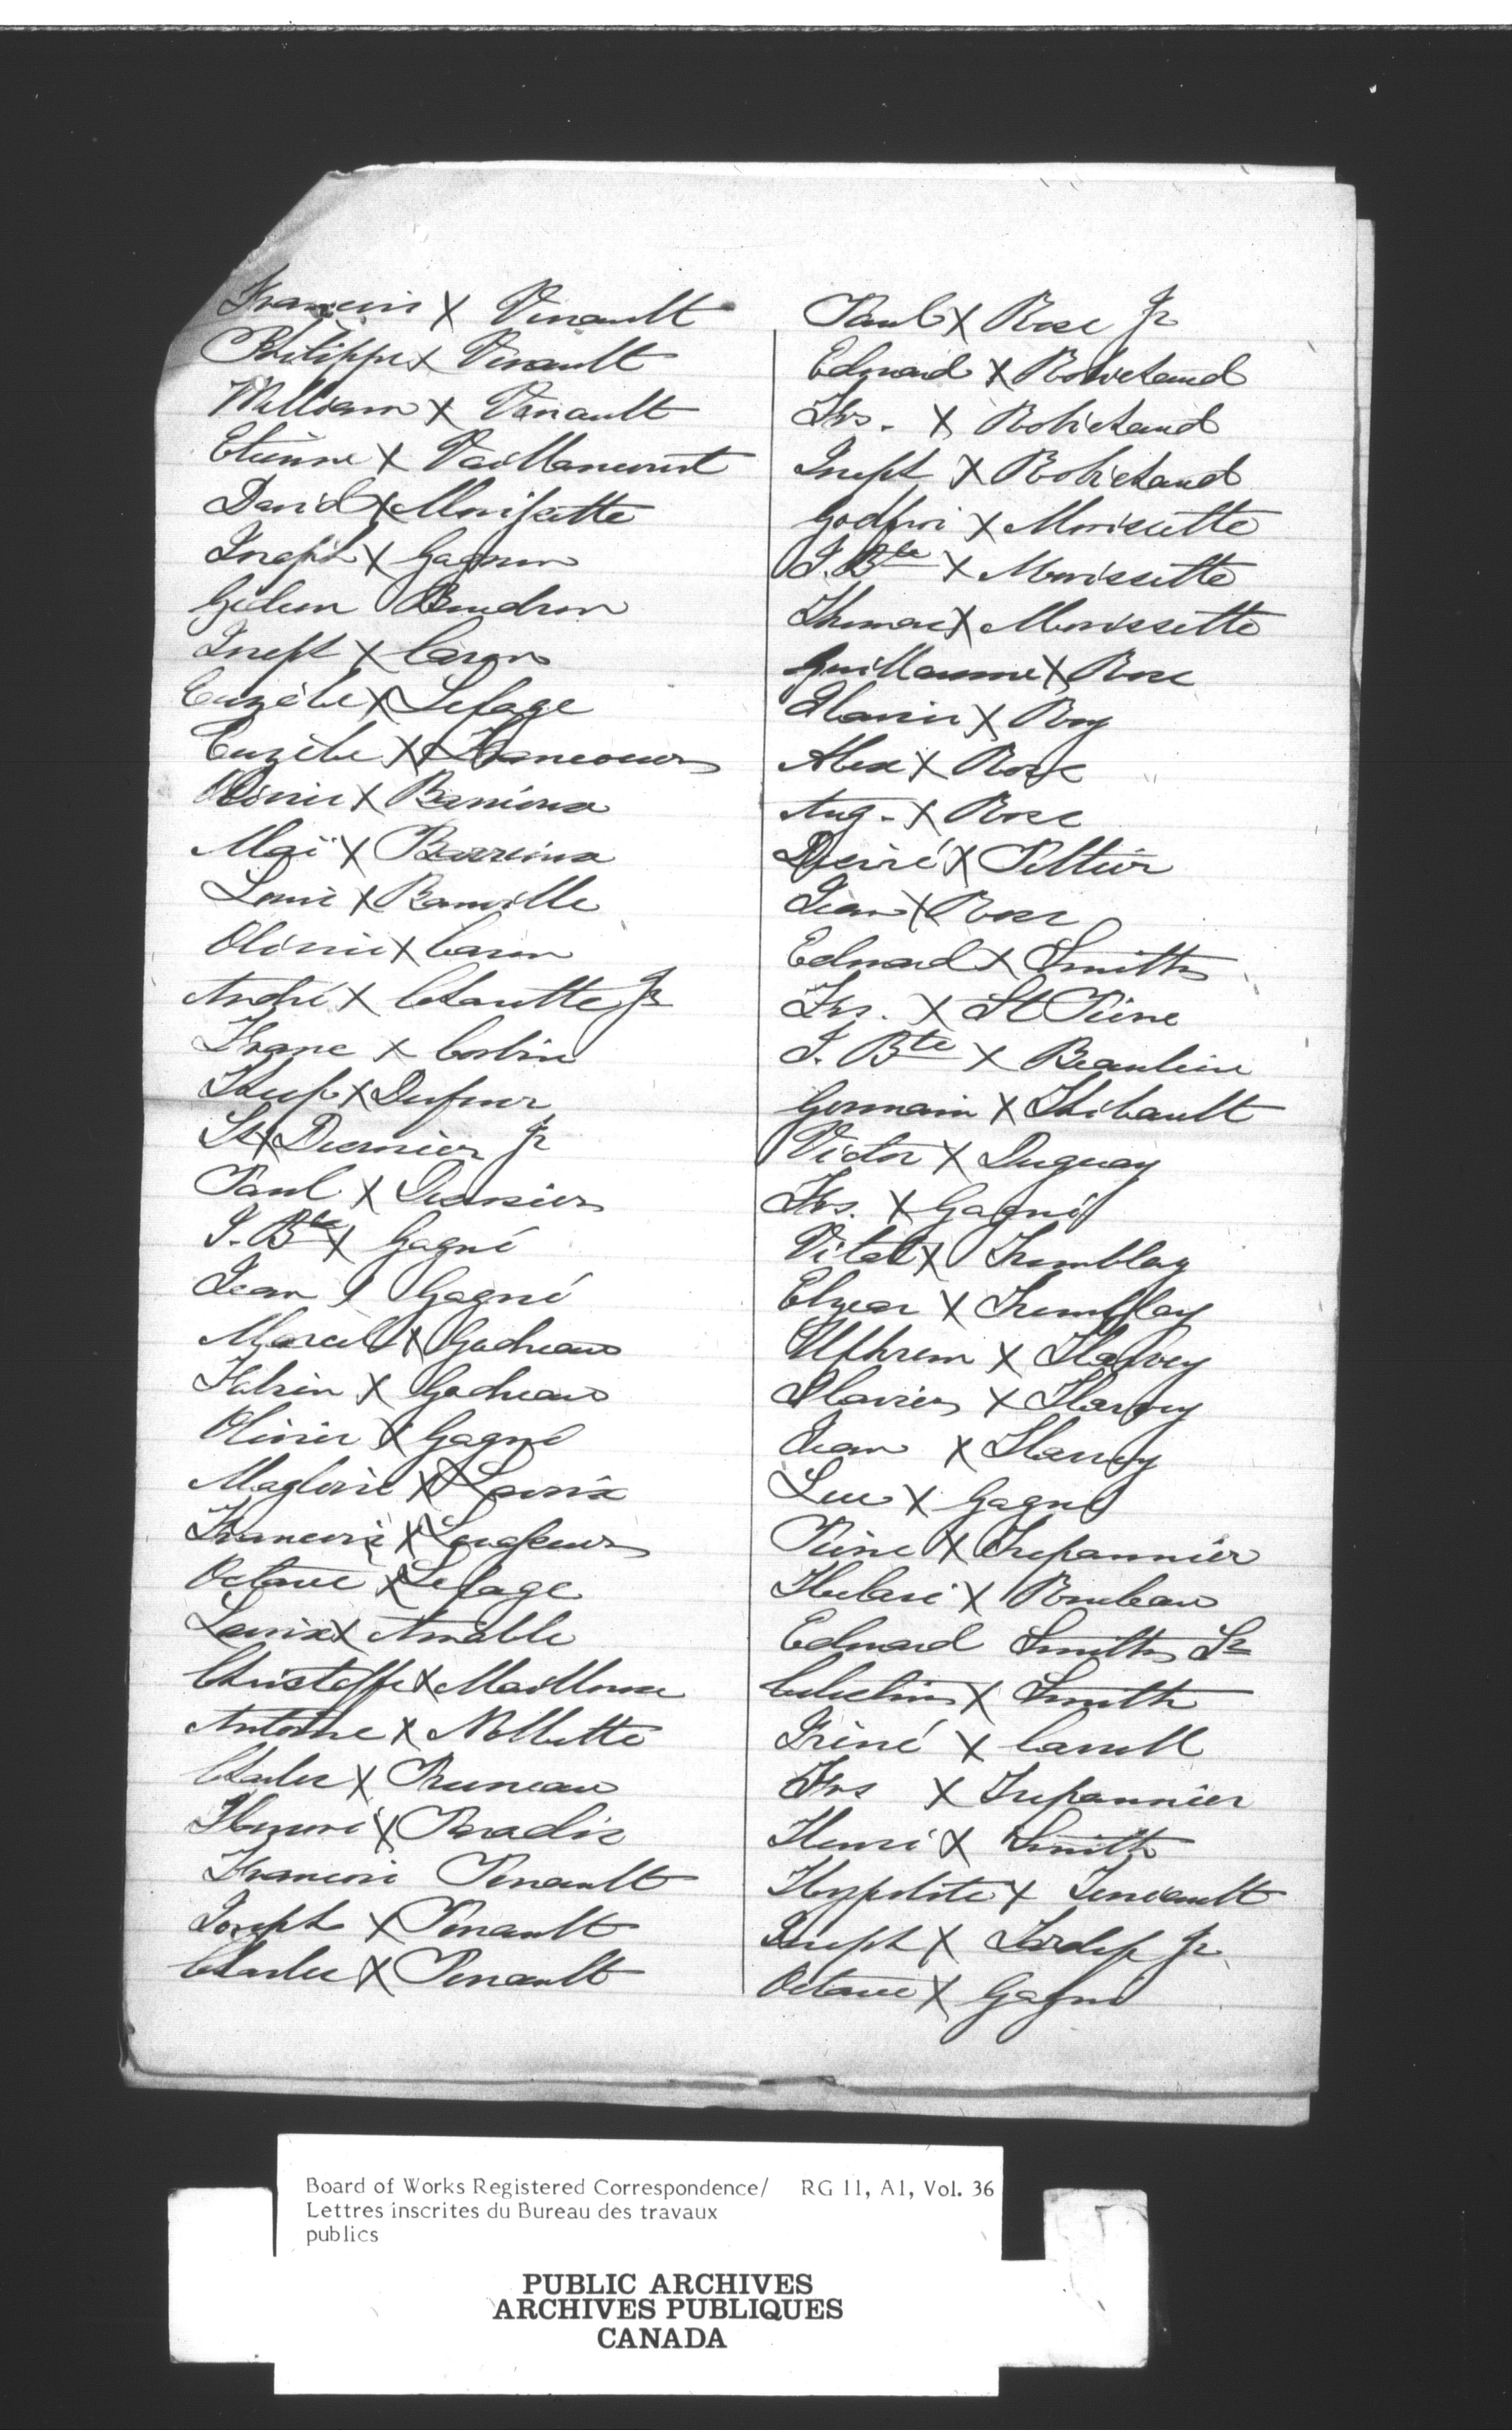 Francois X Vinault
Philippe X Vinault
William X Vinault
Etienne X Vaillancourt
David X Morissette
Joseph X Gagnon
Gédeon Boudron
Joseph X Caron
Euzèbe X Lefage
Euzèbe X Francoeur
Olivier X Barrieux
Moï X Barrieux
Louis X Banville
Olivier X Caron
André X Charette Jr
Franc X Corbin
Jh X Dufour
X Dernier Jr
Paul X Dernier
J. Bte X Gagné
Jean X Gagné
Marcel X Godreau
Fabien X Godreau
Olivier X Gagné
Magloire X Lavoix
Francois X Langlais
Octave X Lefage
Lavoix X Amable
Christoffe X Mailloux
Antoine X Nollette
Charles X Pruneau
Honoré X Paradis
Francois Pinault
Joseph X Pinault
Charles X Pinault
Paul X Rose Jr
Edouard X Robichaud
Frs. X Robichaud
Joseph X Robichaud
Godfroi X Morissette
J. Bte X Morissette
Thomas X Morissette
Guillaume X Rose
Flavien X Roy
Alex X Rose
Aug. X Rose
Désiré X Peltier
Jean X Rose
Edouard X Smith
Frs. X St Pierre
J. Bte X Beaulieu
Germain X Thibault
Victor X Duguay
Frs. X Gagné
Vital X Tremblay
Elzear X Tremblay
Ufhrem X Harvey
Flavien X Harvey
Jean X Harvey
Luc X Gagné
Pierre X Trepannier
Hilaire X Rouleau
Edouard Smith Sr
Celestin X Smith
Iriné X Caroll
Frs X Trepannier
Henri X Smith
Hyppolite X Theriault
Joseph X Jr
Octave X Gagné
Board of Works Registered Correspondence/ RG 11, A1, Vol. 36
Lettres inscrites du Bureau des travaux
publics
PUBLIC ARCHIVES
ARCHIVES PUBLIQUES
CANADA